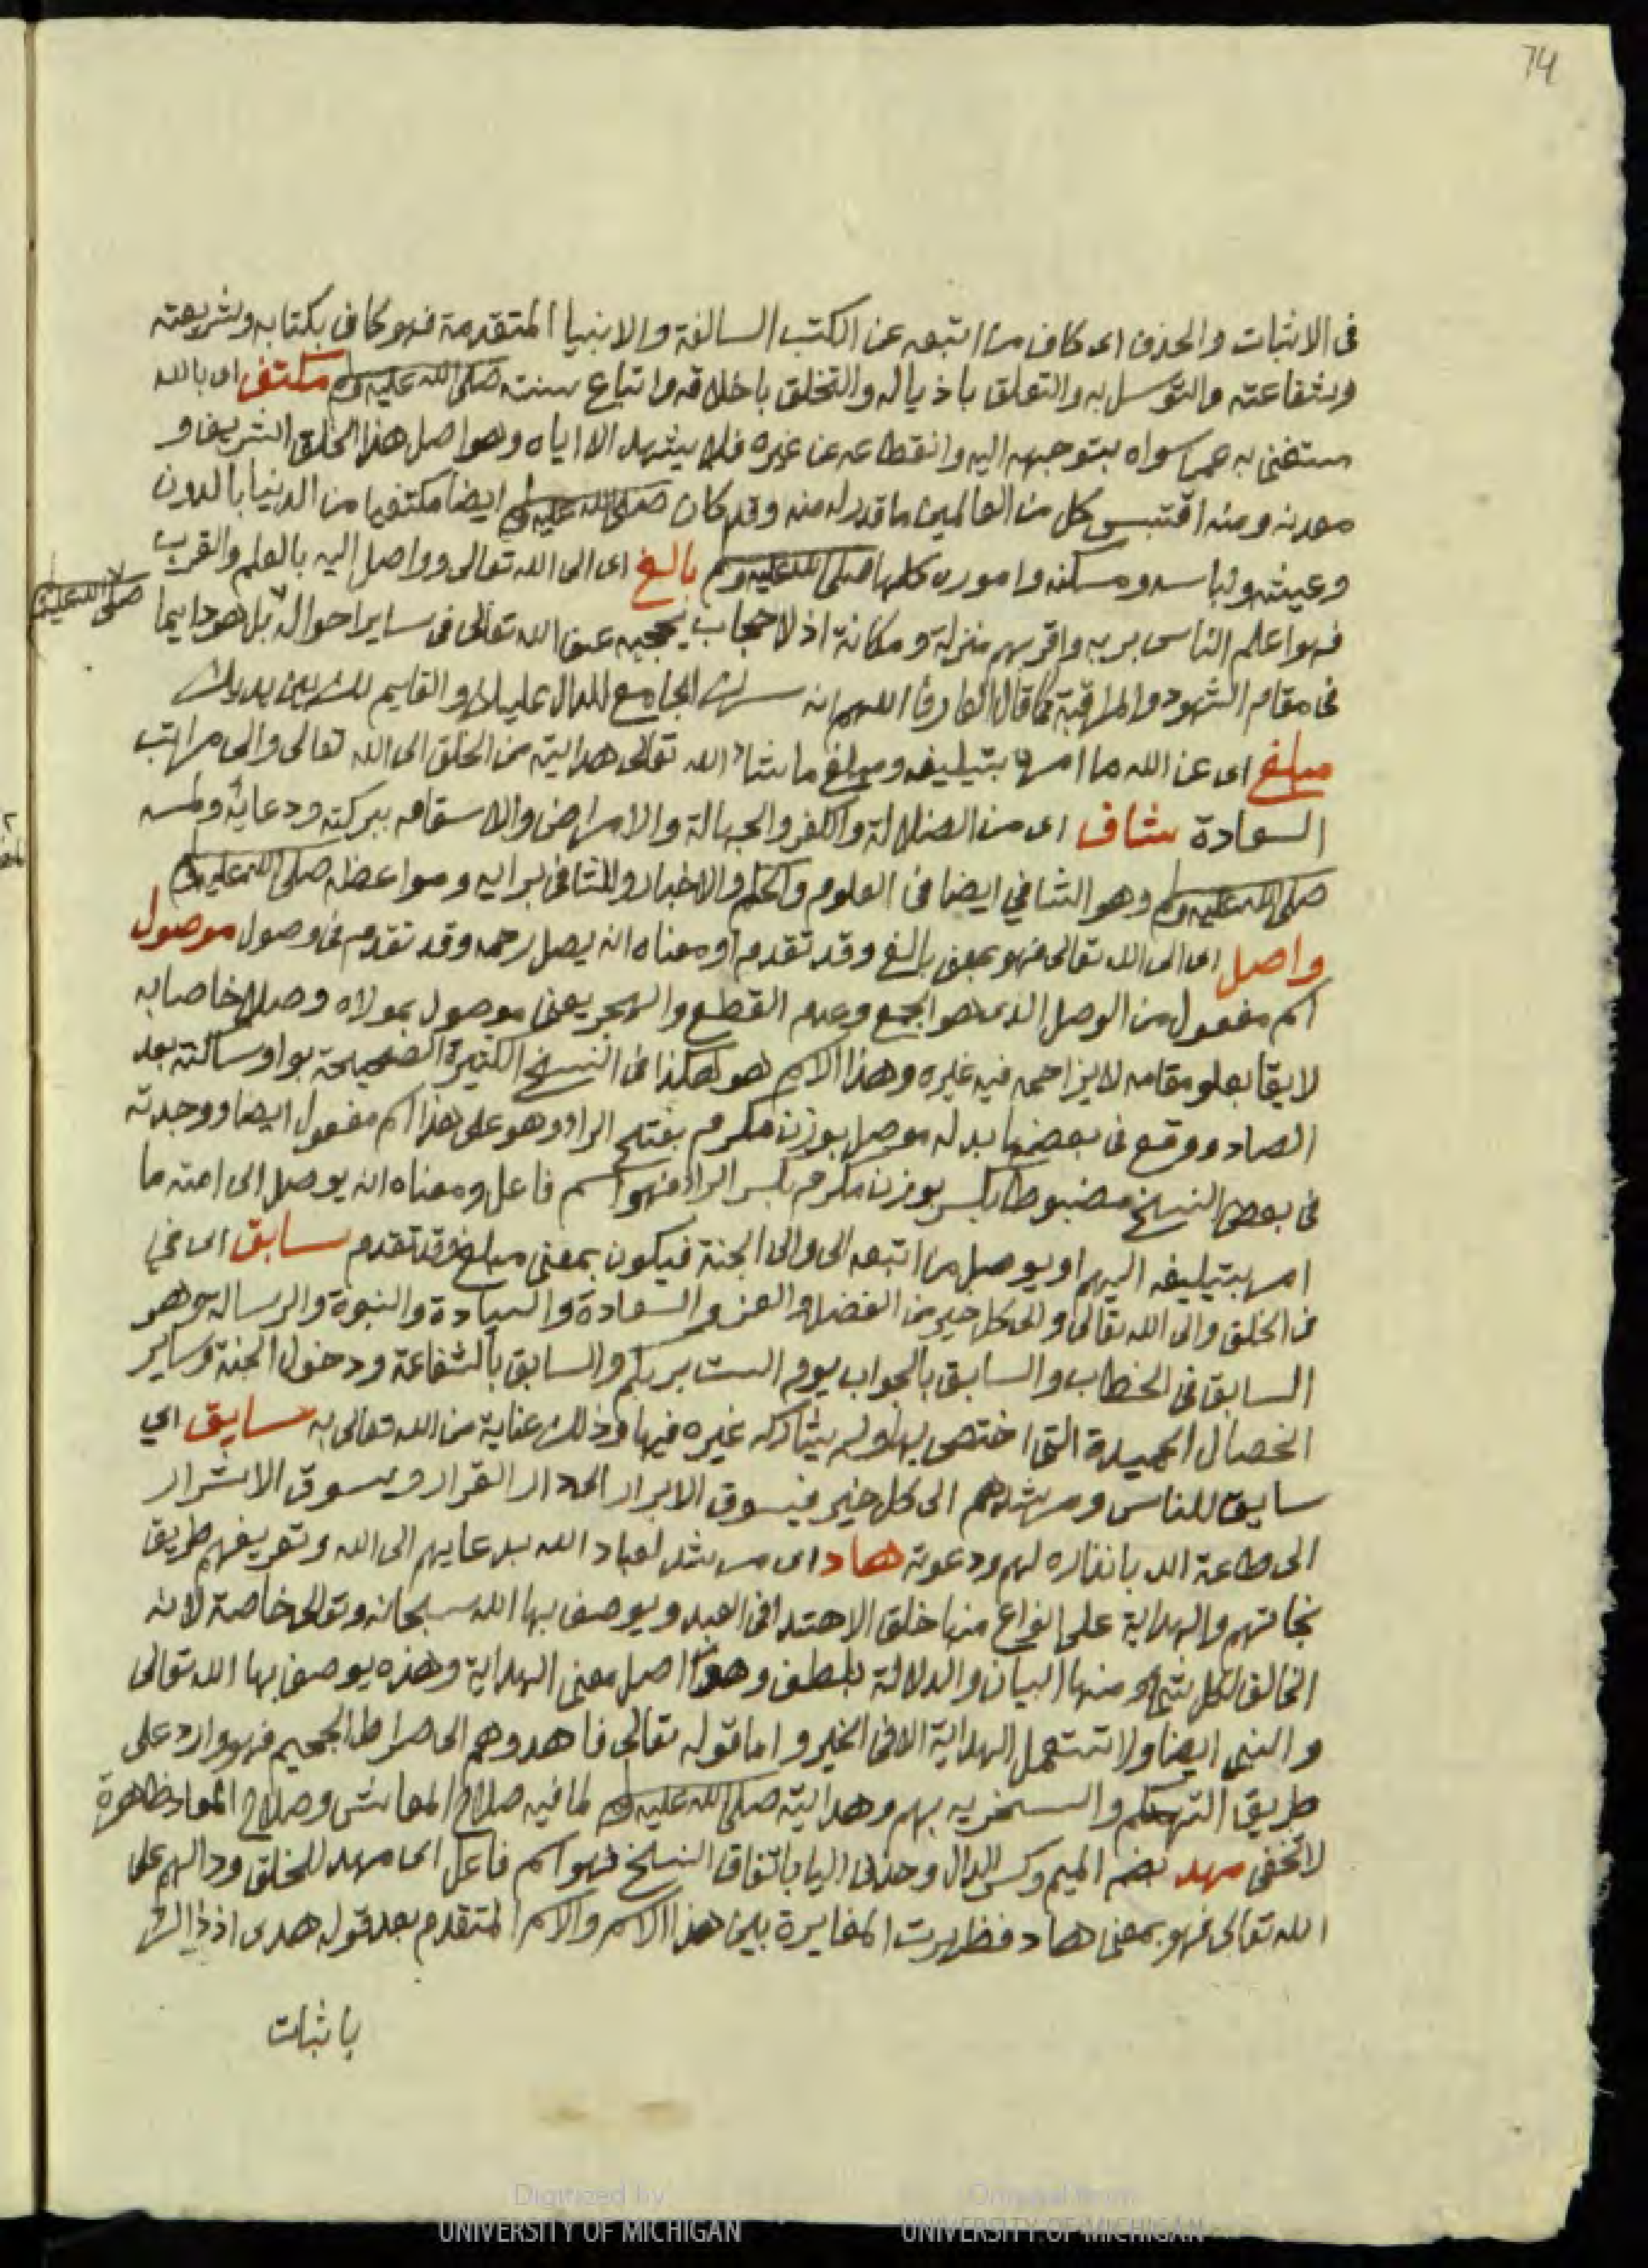 74
فى الاثبات والحذف اى كاف من اتبعه عن الكتب السالفة والانبيا المتقدمة فهو كاف بكتابه وشريعته
وشفاعته والتوسل به والتعلق باذياله والتخلق باخلاقه واتباع سنته صلى الله عليه وسلم مكتف اى بالله
مستغنى به عما سواه بتوجهه اليه وانقطاعه عن غيره فلا يشهد الا اياه وهو اصل هذا الخلق الشريف و
معدنه ومنه اقتبس كل من العالمين ما قدر له منه وقد كان صلى الله عليه وسلم ايضا مكتفيا من الدنيا بالدون
وعيشه ولباسه ومسكنه واموره كلها صلى الله عليه وسلم بالغ اى الى الله تعالى وواصل اليه بالعلم والقرب
صلى الله عليه
فهو اعلم الناس بربه واقربهم منزلة ومكانة اذ لا حجاب يحجبه عن الله تعالى فى ساير احواله بل هو دايما
فى مقام الشهود والمراقبة كما قال العارف اللهم انه سرك الجامع الدال عليك والقايم لك بين يديك
مبلغ اى عن الله ما امره بتبليغه ومبلغ ما شاء الله تعالى هدايته من الخلق الى الله تعالى والى مراتب
السعادة شاف اى من الضلالة والكفر والجهالة والامراض والاسقام ببركته ودعايه ولمسه
صلى الله عليه وسلم وهو الشافي ايضا فى العلوم والحكم والاخبار والمشافى برايه ومواعظه صلى الله عليه وسلم
واصل اى الى الله تعالى فهو بمعنى بالغ وقد تقدم او معناه انه يصل رحمه وقد تقدم فى وصول موصول
اسم مفعول من الوصل الذى هو الجمع وعدم القطع والهجر يعنى موصول بمولاه وصلا خاصا به
لايقا بعلو مقامه لا يزاحمه فيه غيره وهذا الاسم هو هكذا فى النسخ الكثيرة الصحيحة بواو ساكنة بعد
الصاد ووقع فى بعضها بدله موصل بوزن مكرم بفتح الراء وهو على هذا اسم مفعول ايضا ووجدته
فى بعض النسخ مضبوطا بكسر بوزن مكرم بكسر الراء فهو اسم فاعل ومعناه انه يوصل الى امته ما
امر بتبليغه اليهم او يوصل من اتبعه الى والى الجنة فيكون بمعنى مبلغ وقد تقدم سابق اى فى
فى الخلق والى الله تعالى والى كل خير من الفضل والعز والسعادة والسيادة والنبوة والرسالة وهو
السابق فى الخطاب والسابق بالجواب يوم الست بربكم والسابق بالشفاعة ودخول الجنة وساير
الخصال الحميدة التى اختص بها ولم يشاركه غيره فيها وذلك عناية من الله تعالى به سايق اي
سايق للناس ومرشدهم الى كل خير فيسوق الابرار الى دار القرار ويسوق الاشرار
الى طاعة الله بانذاره لهم ودعوته هاد اى مرشد لعباد الله بدعايهم الى الله وتعريفهم طريق
نجاتهم والهداية على انواع منها خلق الاهتدا فى العبد ويوصف بها الله سبحانه وتعالى خاصة لانه
الخالق لكل شئ ومنها البيان والدلالة بلطف وهو اصل معنى الهداية وهذه يوصف بها الله تعالى
والنبى ايضا ولا تستعمل الهداية الا فى الخير واما قوله تعالى فاهدوهم الى صراط الجحيم فهو وارد على
طريق التهكم والسخريه بهم وهدايته صلى الله عليه وسلم لما فيه صلاح المعاش وصلاح المعاد ظاهرة
لا تخفى مهد بضم الميم وكسر الدال وحذف اليا باتفاق النسخ فهو اسم فاعل اى مهد للخلق ودالهم على
الله تعالى فهو بمعنى هاد فظهرت المغايرة بين هذا الاسم والاسم المتقدم بعد قوله هدى اذ ذاك
باثبات
Digitized by
UNIVERSITY OF MICHIGAN
Original from
UNIVERSITY OF MICHIGAN